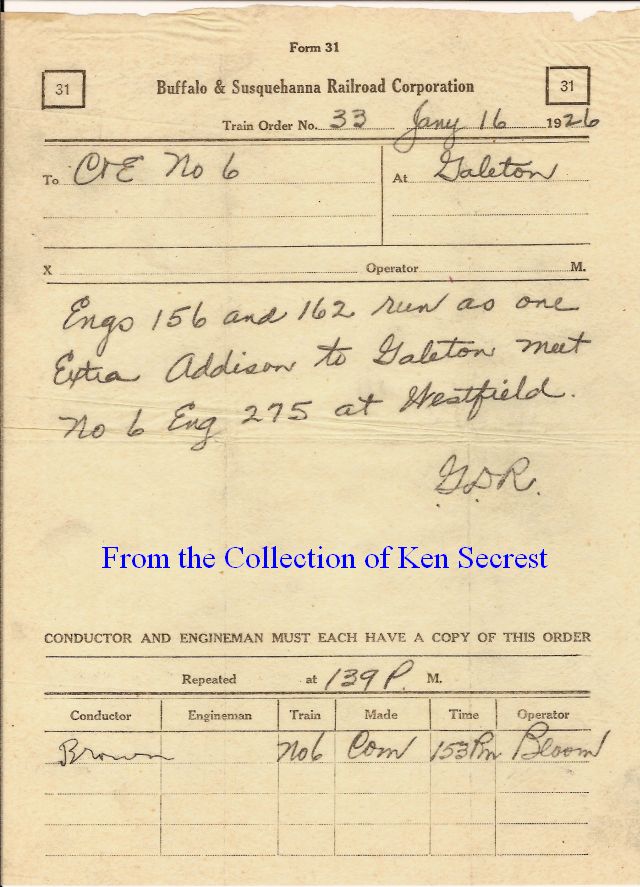 Form 31
31 Buffalo & Susquehanna Railroad Corporation 31
Train Order No. 33 Jany 16 1926
To C&E No 6 At Galeton
X Operator M.
Engs 156 and 162 run as one
Extra Addison to Galeton meet
No 6 Eng 275 at Westfield.
G.D.R.
From the Collection of Ken Secrest
CONDUCTOR AND ENGINEMAN MUST EACH HAVE A COPY OF THIS ORDER
Repeated at 139 P. M.
Conductor Engineman Train Made Time Operator
Brown No 6 Com 153 Pm Bloom